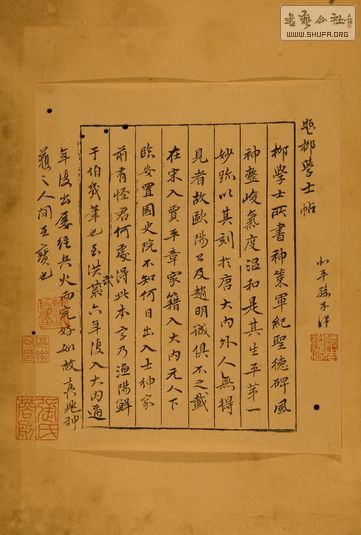 書藝公社
WWW.SHUFA.ORG
題柳學士帖
柳學士所書神策軍紀聖德碑風
神整峻氣度溫和是其生平第一
妙跡以其刻於唐大內外人無得
見者故歐陽公及趙明誠俱不之載
在宋入賈平章家籍入大內元人下
臨安置國史院不知何日出入士紳家
前有怪君何處得此本字乃漁陽鮮
于伯幾筆也至洪武六年復入大內通
年復出屢經兵火而完好如故真死神
人間至寶也
張氏